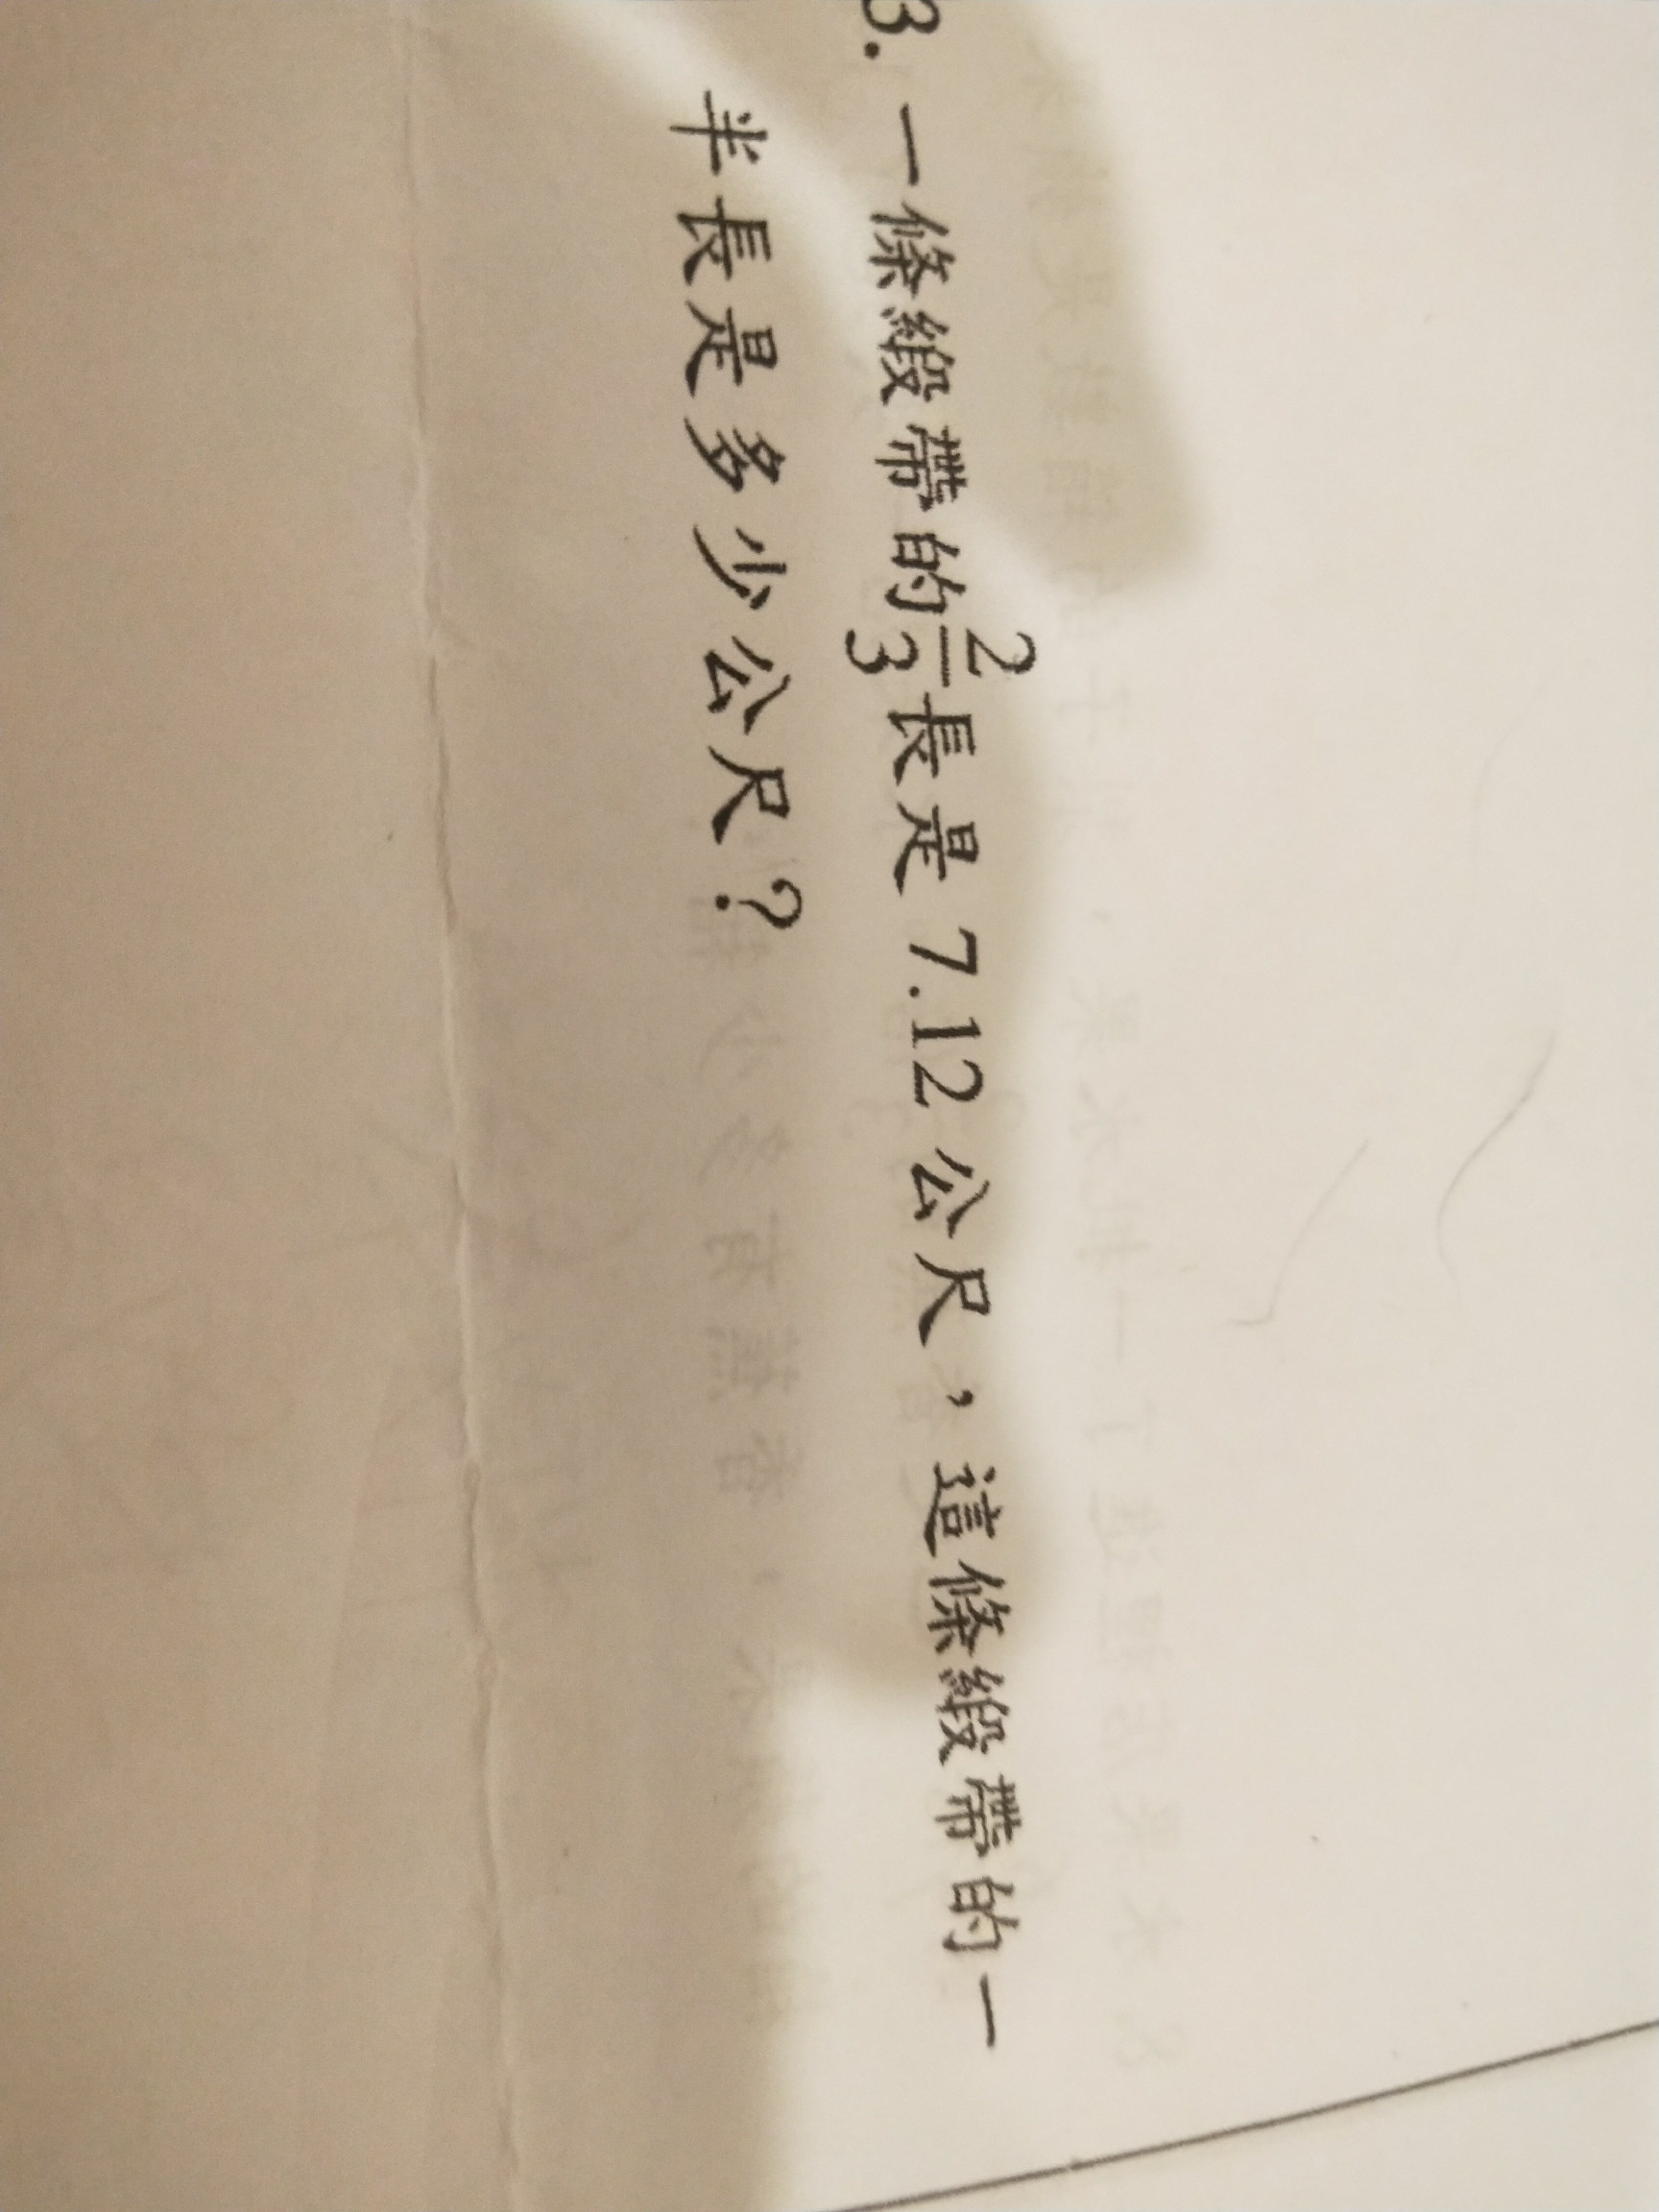 3. 一條緞帶的2/3長是 7.12 公尺，這條緞帶的一
半長是多少公尺？